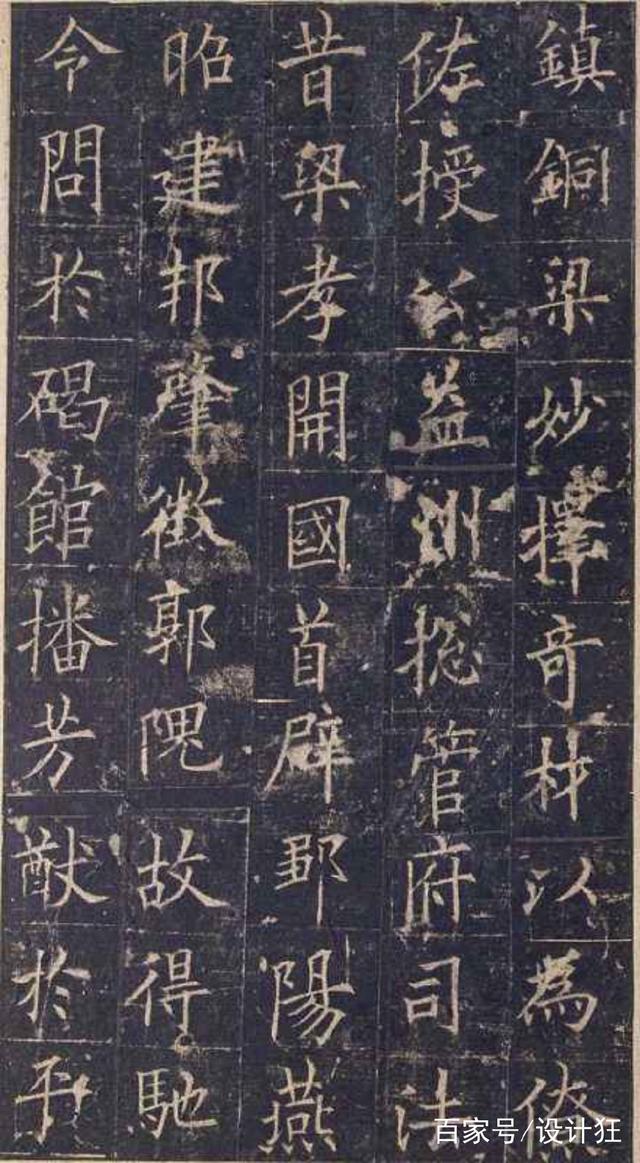 鎮銅梁妙擇奇材以為僚
佐授公益州揔管府司法
昔梁孝開國首辟鄒陽燕
昭建邦肇徵郭隗故得馳
令問於碣館播芳猷於平
百家号/设计狂